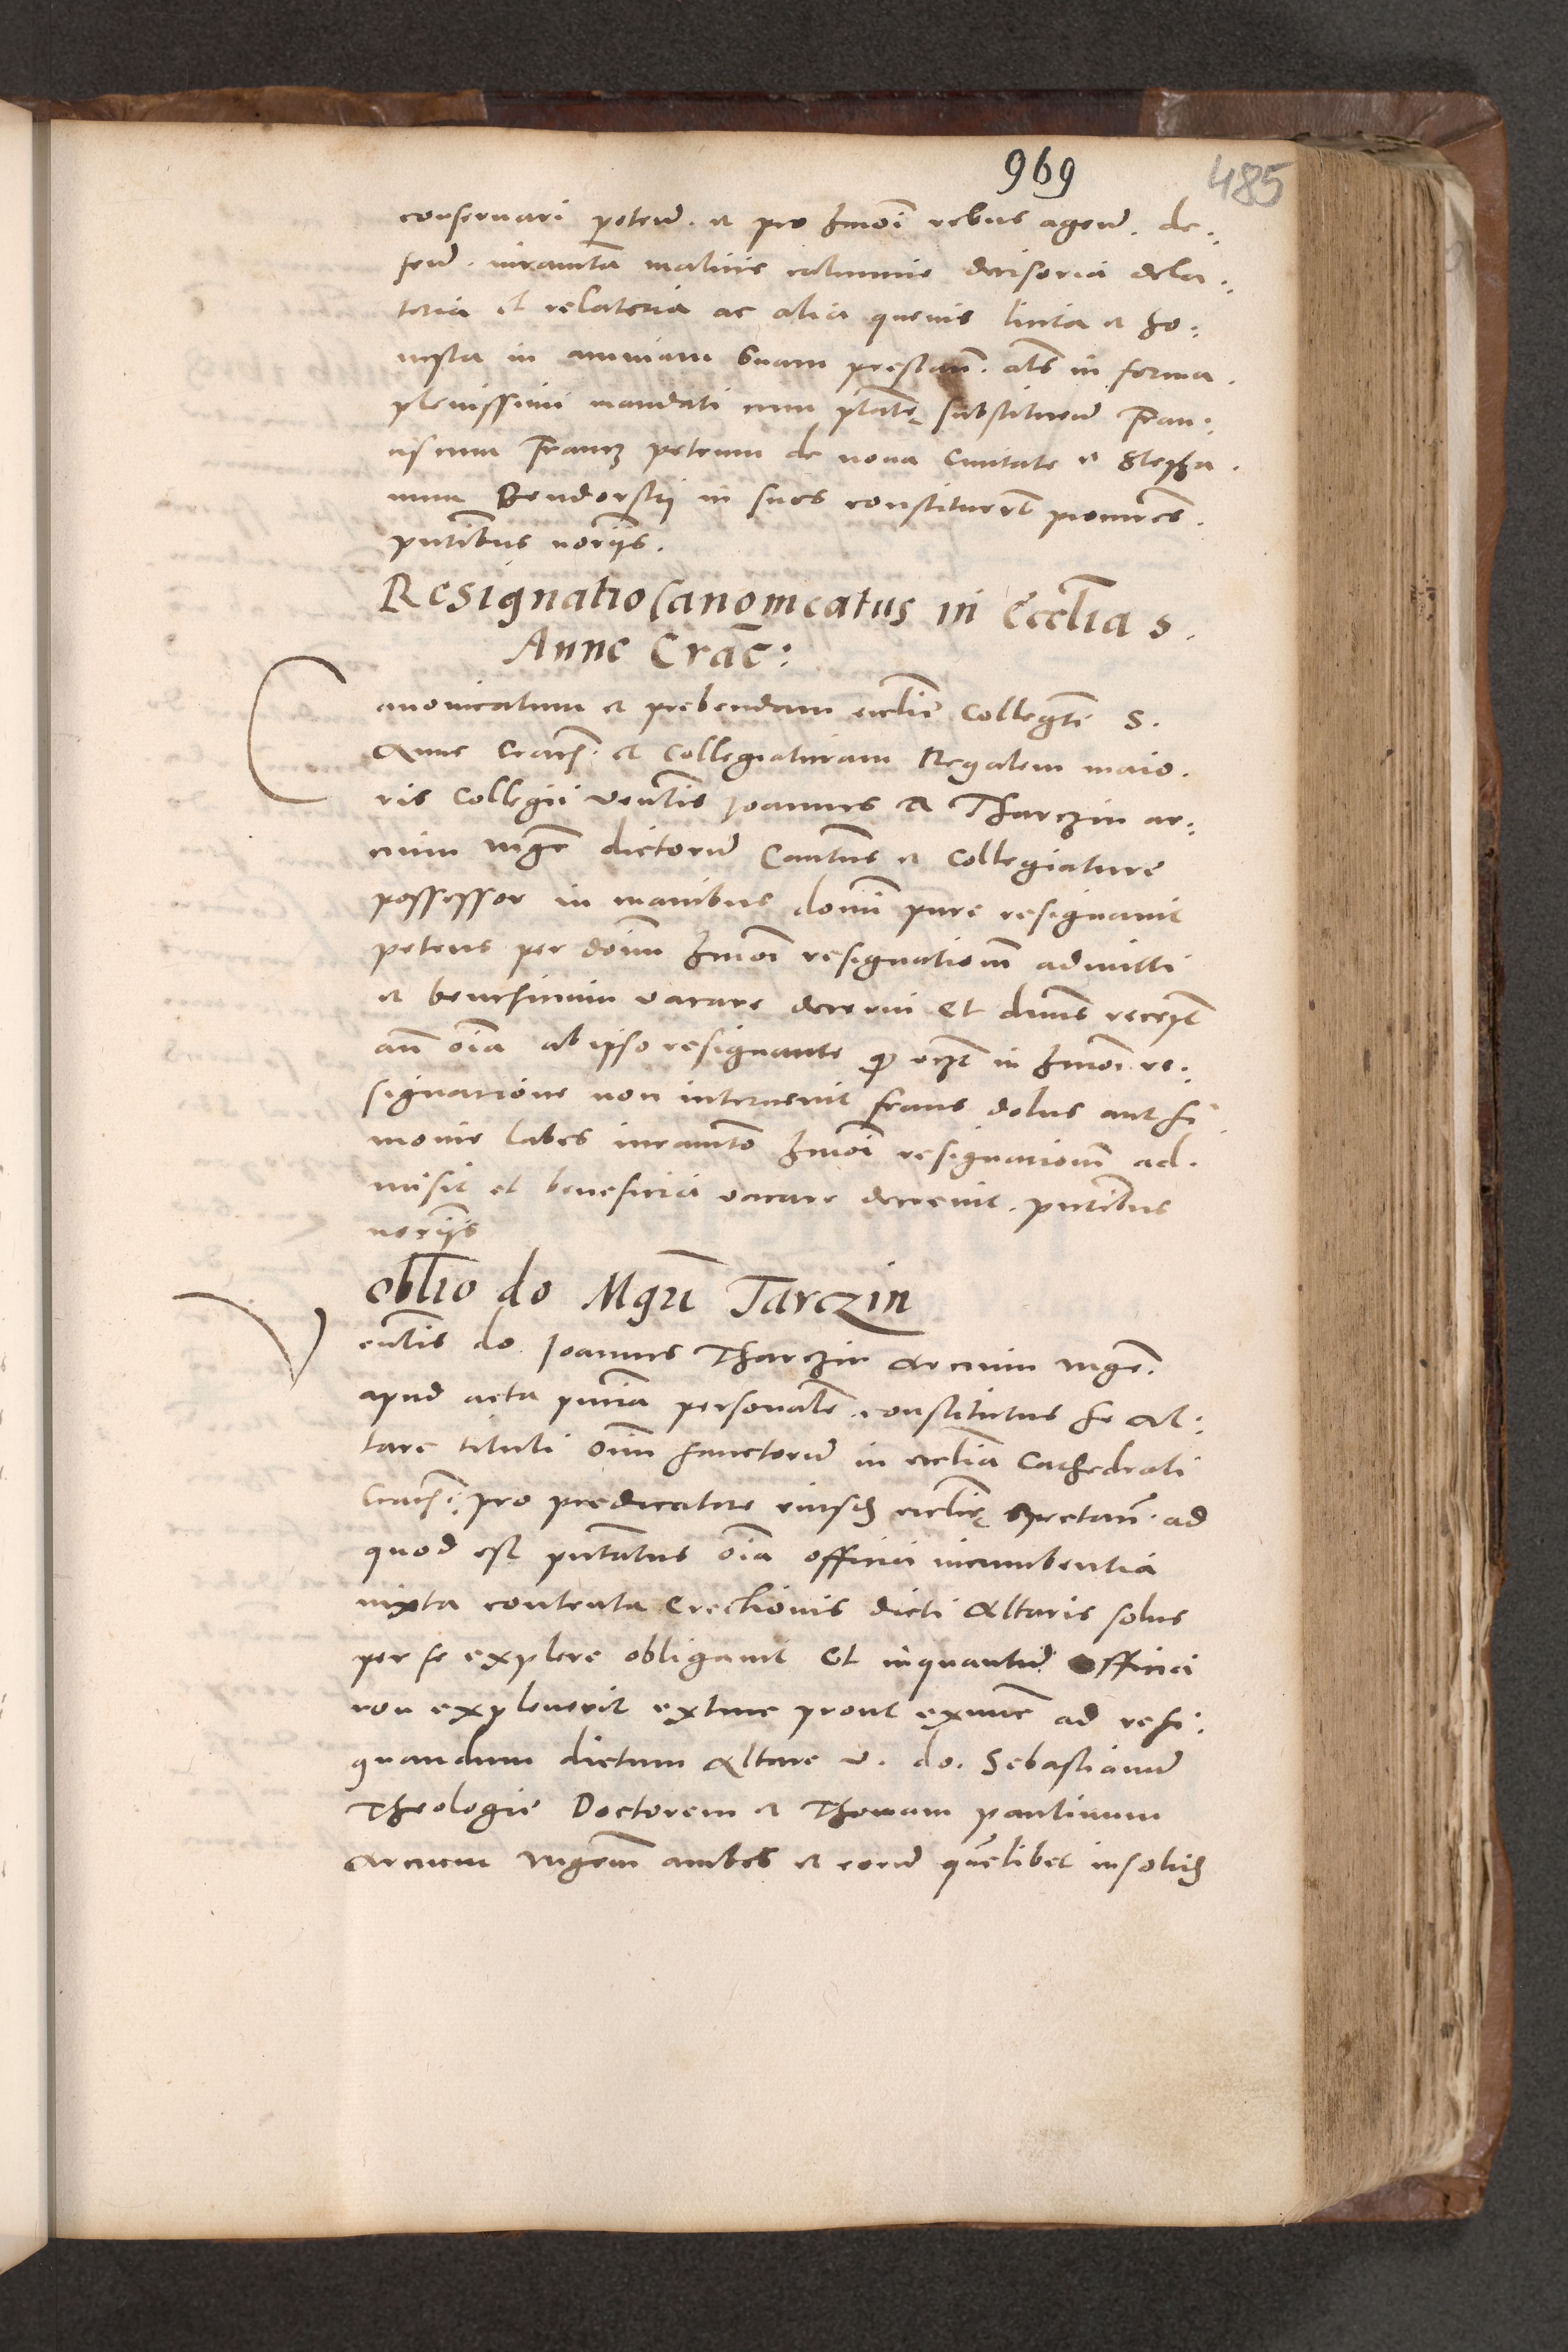 969
485
conservari poterunt et pro hmoi rebus agend. de:
fend. iuramta malicie calumnie decisoria dela:
toria et relatoria ac alia quevis licita et ho:
nesta in animam suam prestand. als in forma
plenissimi mandati cum ptate substituend Fran:
ciscum Francz petrum de nova Civitate et Stepha
num Bendorski in suos constituerunt procures
pntibus noriis.
Resignatio Canonicatus in Ecclia S.
Anne Crac:
Canonicatum et prebendam ecclie Collegte S.
Anne Cracn. et Collegiaturam Regalem maio.
ris Collegii venlis Joannes A Tharczin ar:
cium mgr dictorum Cantus et Collegiature
possessor in manibus domni pure resignavit
petens per dnum hmoi resignationem admitti
et beneficium vacare decerni Et dnus recepit
an oia ab ipso resignante q in hmoi re:
signatione non intervenit fraus dolus aut si
monie labes iuramto hmoi resignationem ad.
misit et beneficia vacare decrevit. pntibus
noriis
oblio do Mgri Tarczin
Venlis do. Joannes Tharczin Arcium mgr.
apud acta pntia personalr constitutus se Al:
tare tituli oim sanctorum in ecclia Cathedrali
Cracn: pro predicatore eiusd ecclie spectan. ad
quod est pntatus oia officia incumbentia
iuxta contenta Erectionis dicti Altaris solus
per se explere obligavit Et inquantum officia
non expleverit extunc prout exnunc ad resi:
gnandum dictum Altare v. do. Sebastianum
Theologie Doctorem et Thomam paulinum
Arcium mgrm ambos et eorum quelibet insolid